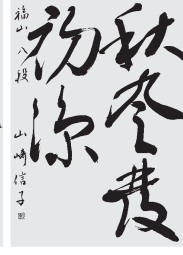 秋風發
初涼
福山 八段 山崎信子